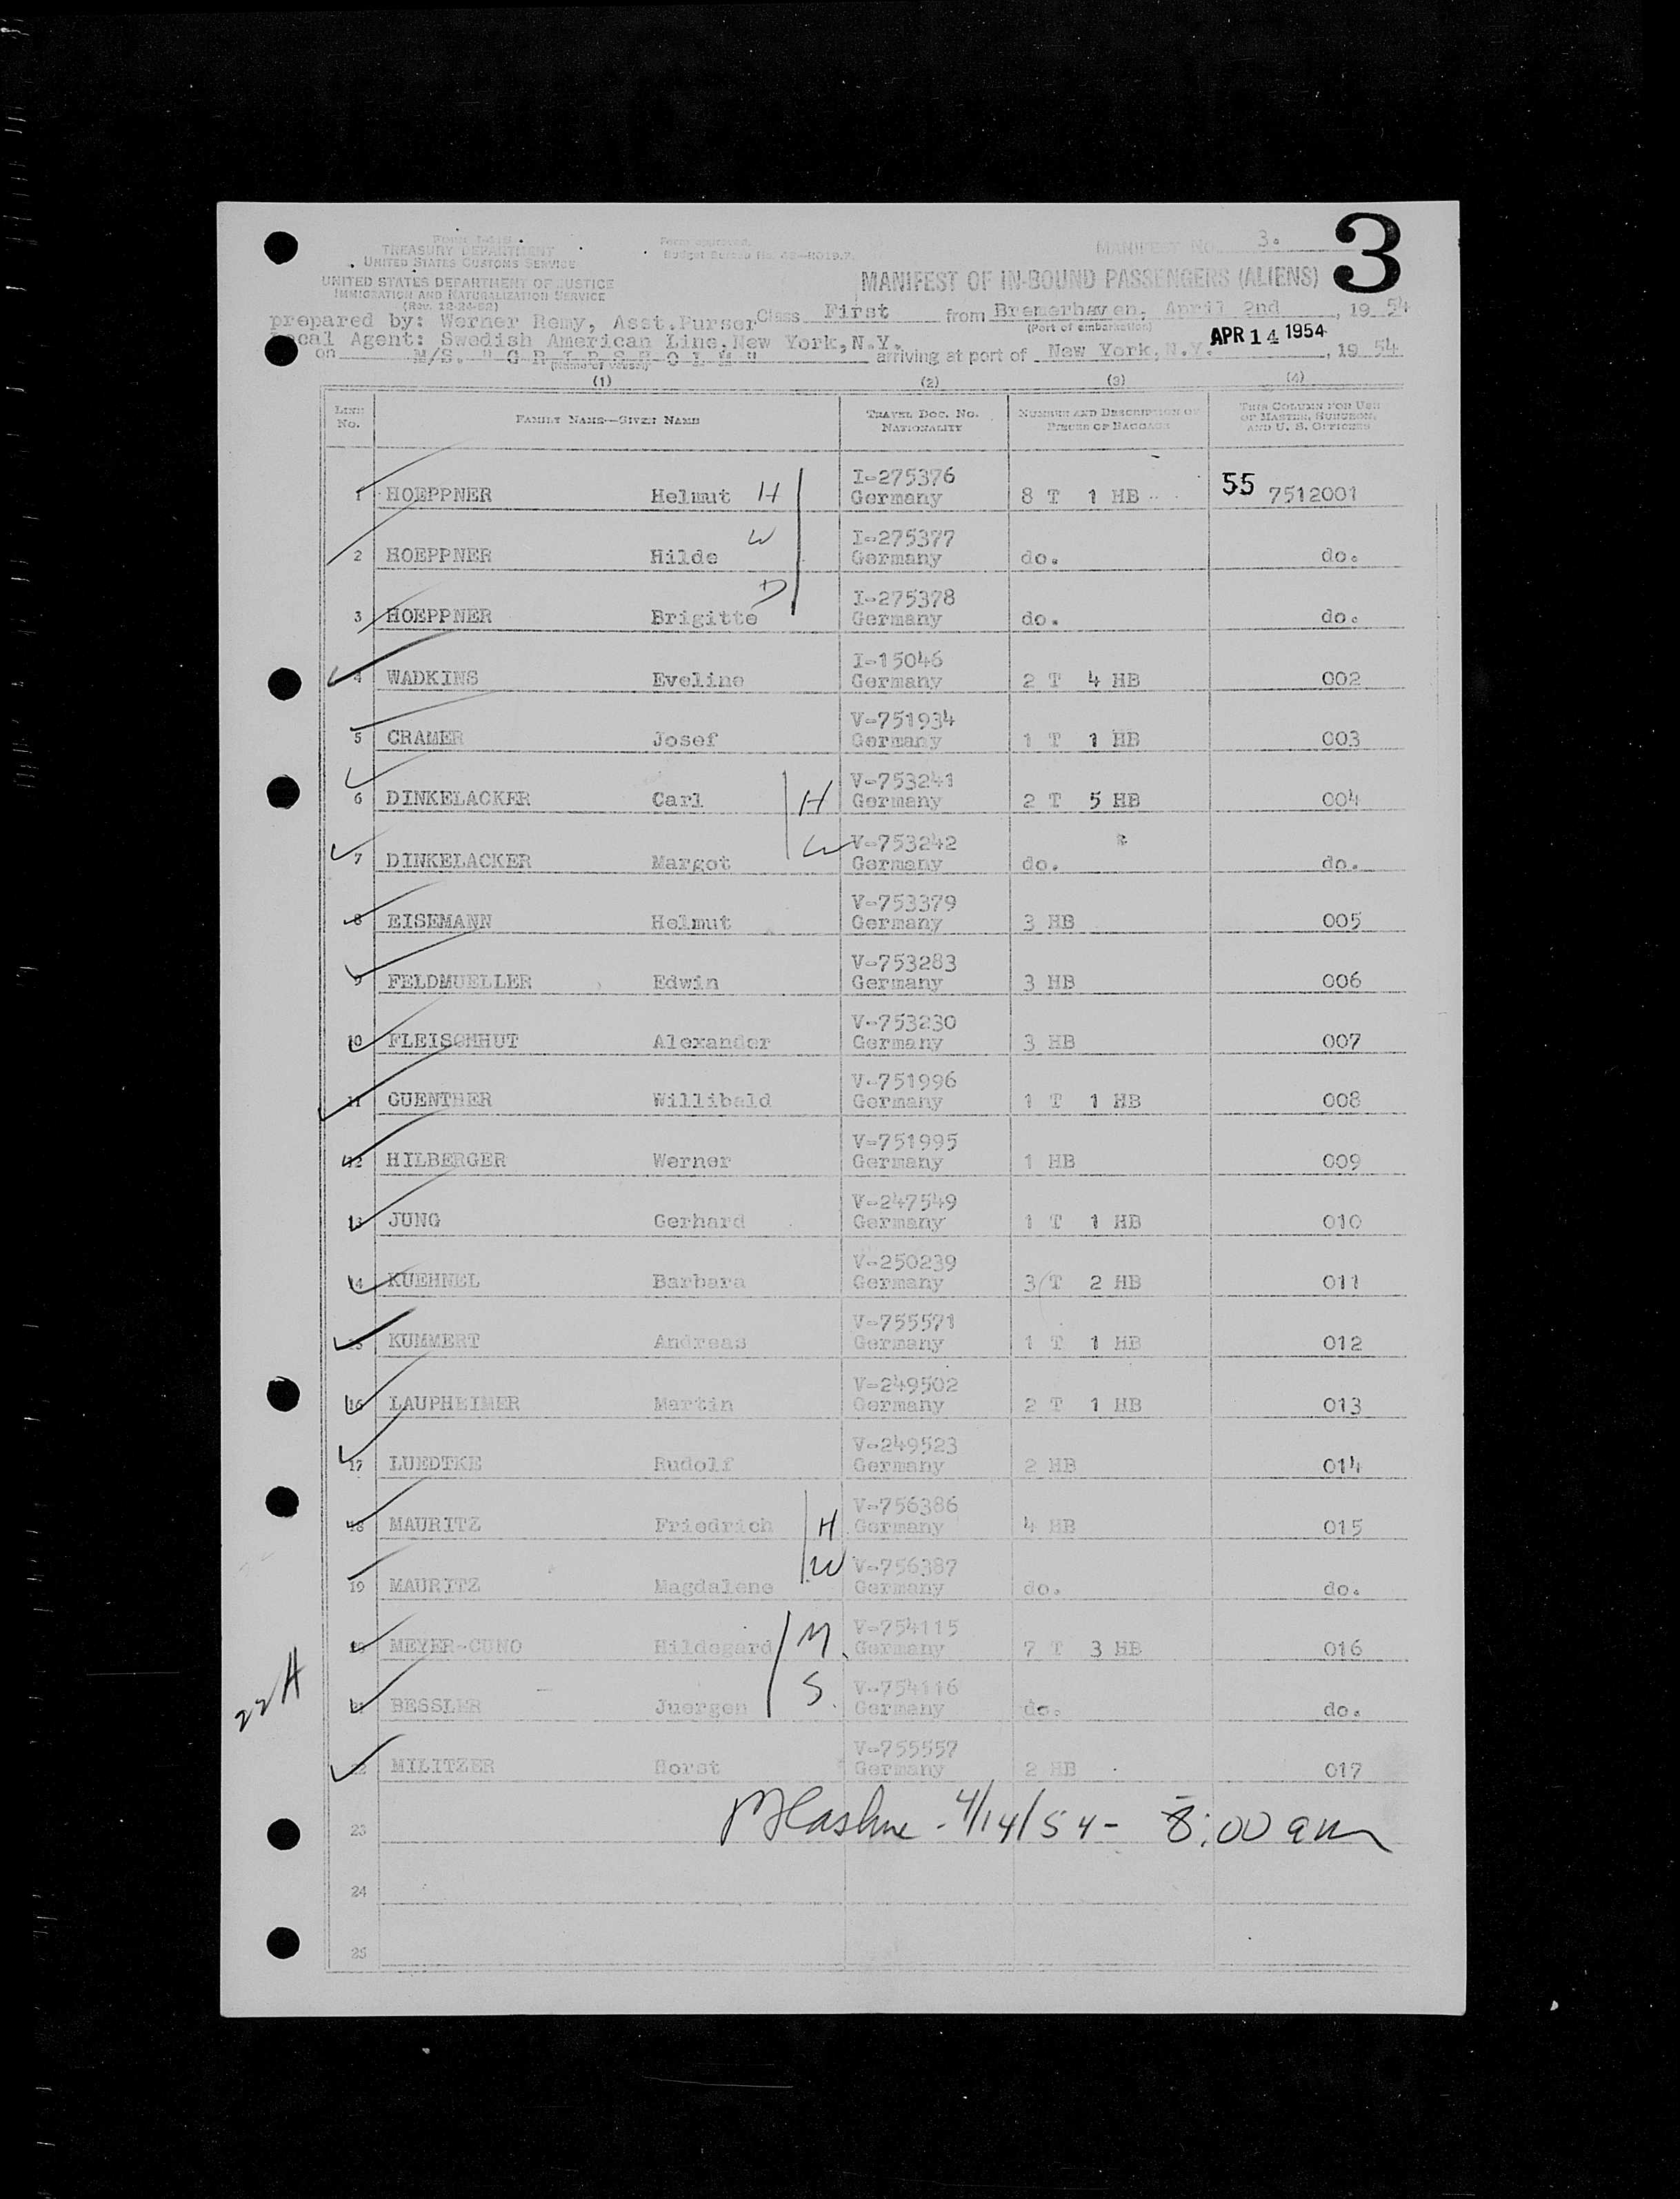 Form I-418
TREASURY DEPARTMENT
UNITED STATES CUSTOMS SERVICE
UNITED STATES DEPARTMENT OF JUSTICE
IMMIGRATION AND NATURALIZATION SERVICE
Form approved.
Budget Bureau No.
MANIFEST NO. 3.
3
MANIFEST OF IN-BOUND PASSENGERS (ALIENS)
prepared by: Werner Remy, Asst.Purser Class First from Bremerhaven, April 2nd, 19 54
(Port of embarkation)
Local Agent: Swedish American Line, New York, N.Y.
on M/S. "G R I P S H O L M" arriving at port of New York, N.Y. APR 14 1954, 19 54
(Name of vessel)
(1) (2) (3) (4)
LINE No. FAMILY NAME—GIVEN NAME TRAVEL DOC. NO. NATIONALITY NUMBER AND DESCRIPTION OF PIECES OF BAGGAGE THIS COLUMN FOR USE OF MASTER, SURGEON, AND U. S. OFFICERS
I-275376
1 HOEPPNER Helmut H Germany 8 T 1 HB 55 7512001
I-275377
2 HOEPPNER Hilde W Germany do. do.
I-275378
3 HOEPPNER Brigitte D Germany do. do.
I-15046
4 WADKINS Eveline Germany 2 T 4 HB 002
V-751934
5 CRAMER Josef Germany 1 T 1 HB 003
V-753241
6 DINKELACKER Carl H Germany 2 T 5 HB 004
V-753242
7 DINKELACKER Margot W Germany do. do.
V-753379
8 EISEMANN Helmut Germany 3 HB 005
V-753283
9 FELDMUELLER Edwin Germany 3 HB 006
V-753230
10 FLEISCHHUT Alexander Germany 3 HB 007
V-751996
11 GUENTHER Willibald Germany 1 T 1 HB 008
V-751995
12 HILBERGER Werner Germany 1 HB 009
V-247549
13 JUNG Gerhard Germany 1 T 1 HB 010
V-250239
14 KUEHNEL Barbara Germany 3 T 2 HB 011
V-755571
15 KUMMERT Andreas Germany 1 T 1 HB 012
V-249502
16 LAUPHEIMER Martin Germany 2 T 1 HB 013
V-249523
17 LUEDTKE Rudolf Germany 2 HB 014
V-756386
18 MAURITZ Friedrich H Germany 4 HB 015
V-756387
19 MAURITZ Magdalene W Germany do. do.
V-754115
20 MEYER-CUNO Hildegard M. Germany 7 T 3 HB 016
V-754116
21 BESSLER Juergen S. Germany do. do.
22 A
V-755557
22 MILITZER Horst Germany 2 HB 017
4/14/54 - 8:00 am
23
24
25